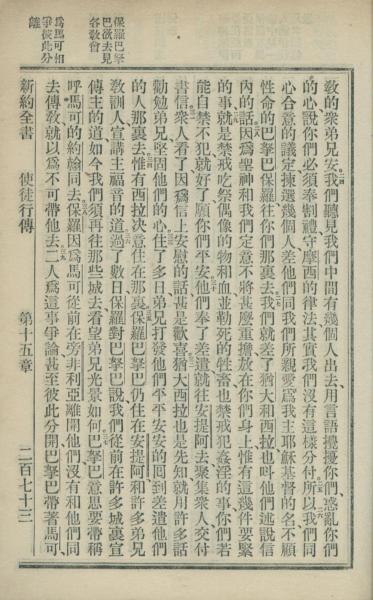 保羅巴拏
巴欲去見
各教會
為馬可相
爭彼此分
離
教的衆弟兄安我們聽見我們中間有幾個人出去用言語擾擾你們惑亂你們
的心說你們必須奉割禮守摩西的律法其實我們沒有這樣分付所以我們同
心合意的議定揀選幾個人差他們同我們所親愛為我主耶穌基督的名不顧
性命的巴拏巴保羅往你們那裏去我們就差了猶大和西拉也呌他們述說信
內的話因為聖神和我們定意不將甚麼重擔放在你們身上惟有這幾件要緊
的事就是禁戒吃祭偶像的物和血並勒死的牲畜也禁戒犯姦淫的事你們若
能自禁不犯就好了願你們平安他們奉了差遣就往安提阿去聚集衆人交付
書信衆人看了因為信上安慰的話甚是歡喜猶大西拉也是先知就用許多話
勸勉弟兄堅固他們的心住了多日弟兄打發他們平平安安的囘到差遣他們
的人那裏去惟有西拉決意住在那裏保羅巴拏巴仍住在安提阿和許多弟兄
敎訓人宣講主福音的道過了數日保羅對巴拏巴說我們從前在許多城裏宣
傳主的道如今我們須再往那些城去看望弟兄光景如何巴拏巴意思要帶稱
呼馬可的約翰同去保羅因為馬可從前在旁非利亞離開他們沒有和他們同
去傳敎就以為不可帶他去二人為這事爭論甚至彼此分開巴拏巴帶著馬可
新約全書　使徒行傳　第十五章　二百七十三